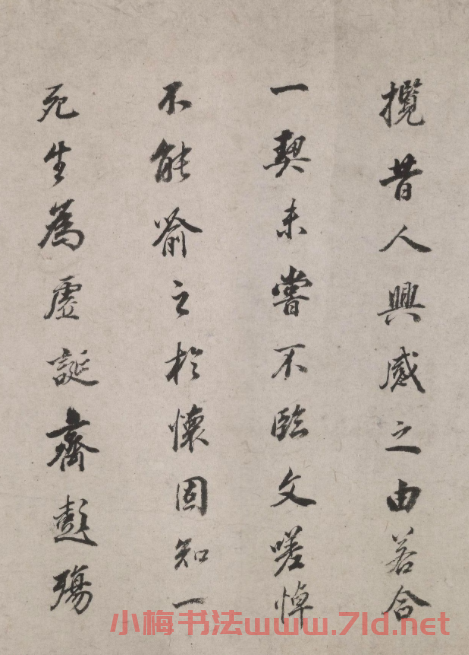 攬昔人興感之由若合
一契未嘗不臨文嗟悼
不能喻之於懷固知一
死生為虛誕齊彭殤
小梅书法www.7ld.net